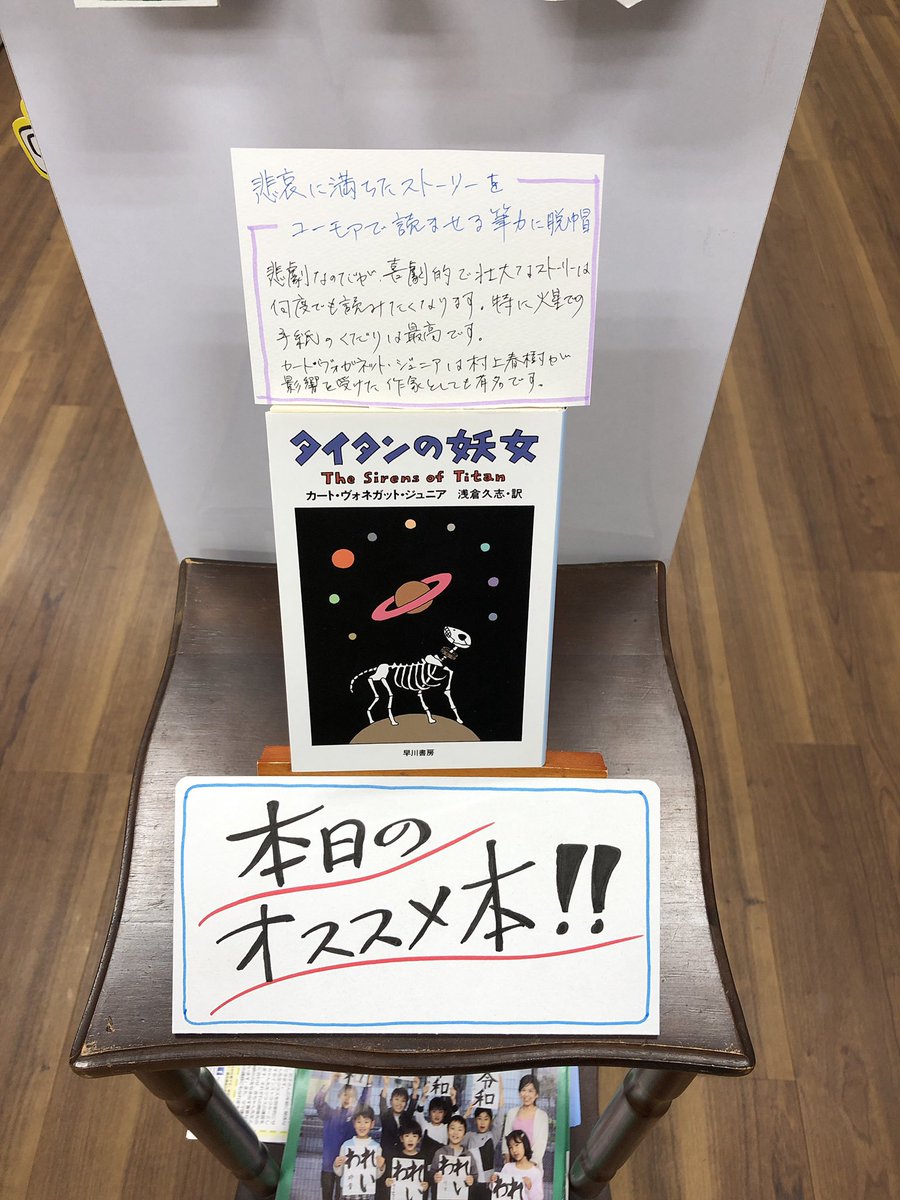 悲哀に満ちたストーリーを
ユーモアで読ませる筆力に脱帽
悲劇なのだが、喜劇的で壮大なストーリーは
何度でも読みたくなります。特に火星での
手紙のくだりは最高です。
カート・ヴォガネット・ジュニアは村上春樹が
影響を受けた作家としても有名です。
タイタンの妖女
The Sirens of Titan
カート・ヴォネガット・ジュニア 浅倉久志・訳
早川書房
本日の
オススメ本!!
令和
和
われい
われい
われい
われ